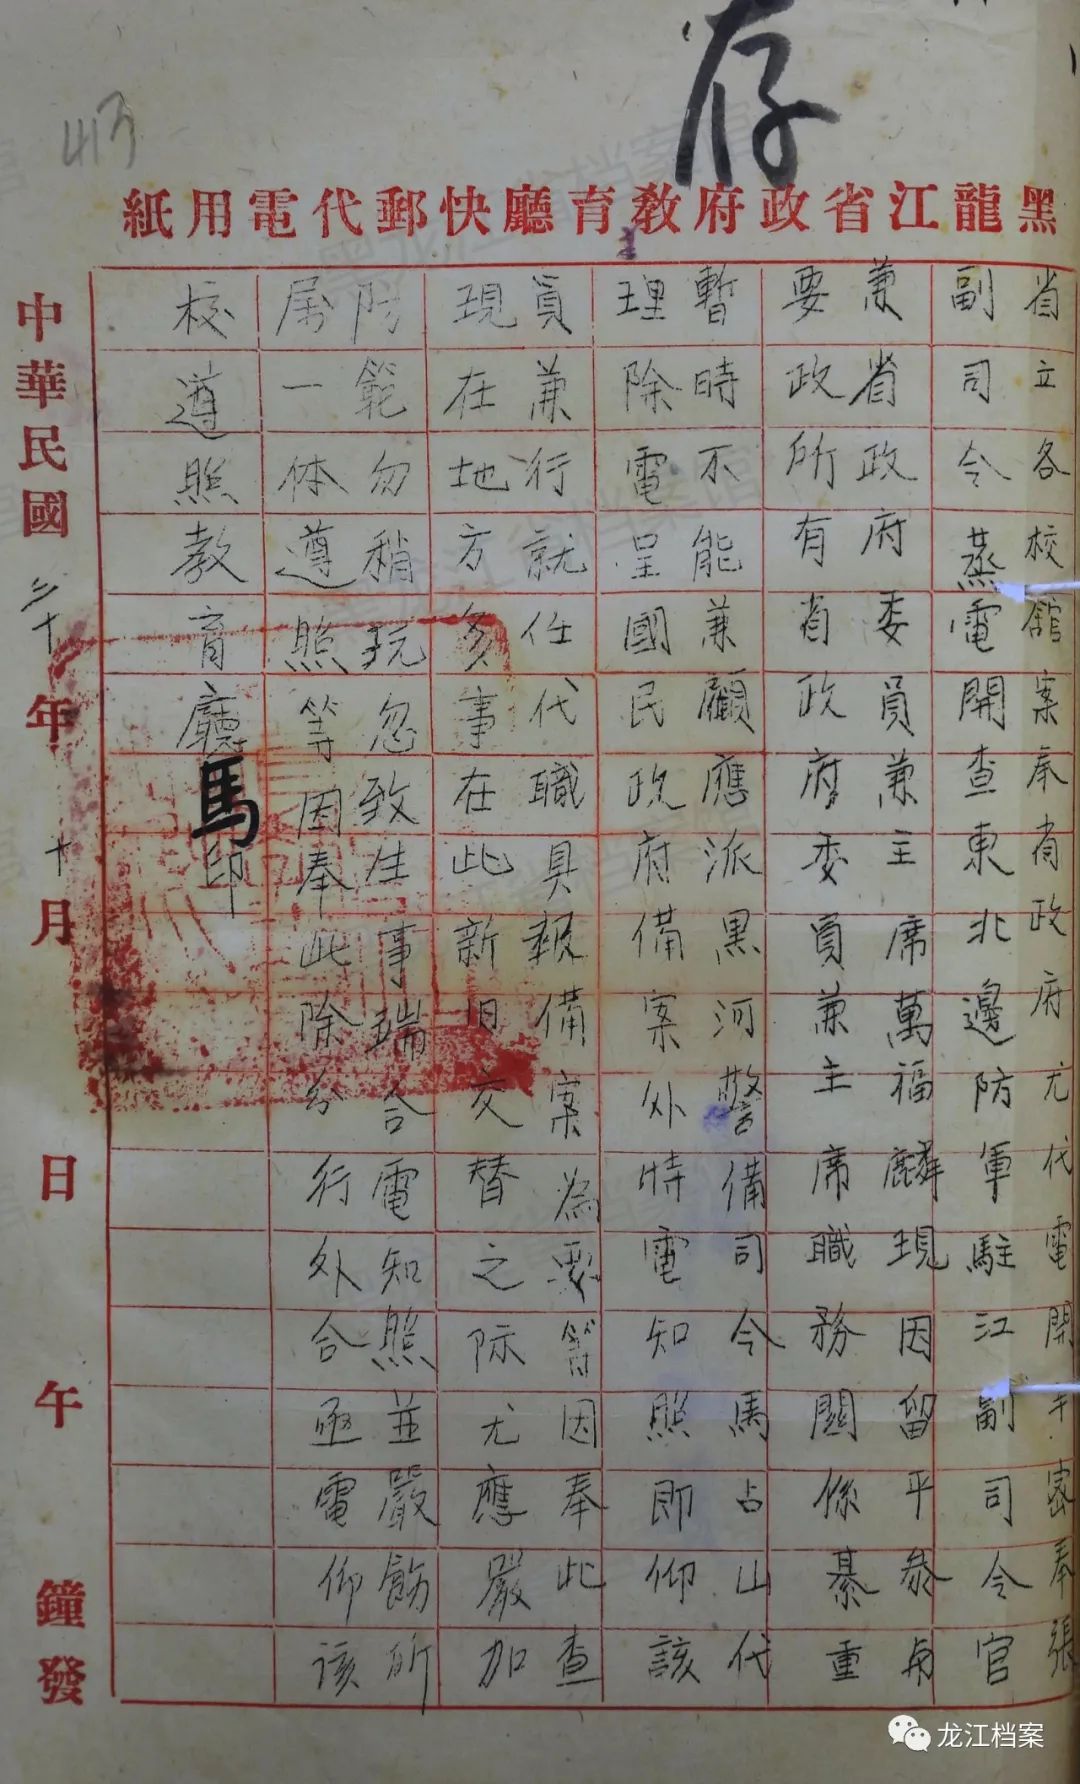 存
413
黑龍江省政府教育廳快郵代電用紙
省立各校館案奉省政府尤代電開密奉張
副司令蒸電開查東北邊防軍駐江副司令官
兼省政府委員兼主席萬福麟現因留平參与
要政所有省政府委員兼主席職務關係綦重
暫時不能兼顧應派黑河警備司令馬占山代
理除電呈國民政府備案外特電知照即仰該
員兼行就任代職具報備案為要等因奉此查
現在地方多事在此新旧交替之际尤應嚴加
防範勿稍玩忽致生事端合電知照並嚴飭所
屬一体遵照等因奉此除分行外合亟電仰該
校遵照教育廳馬印
中華民國二十年十月日午鐘發
龙江档案